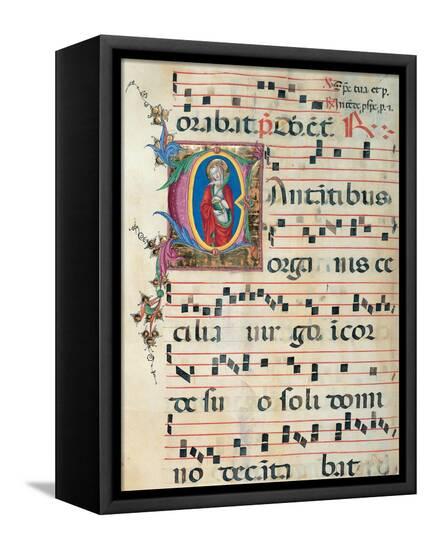 orabat
Cantātibus
orga nis ce
cilia uir go ī cor
de su o soli domi
no decāta bat